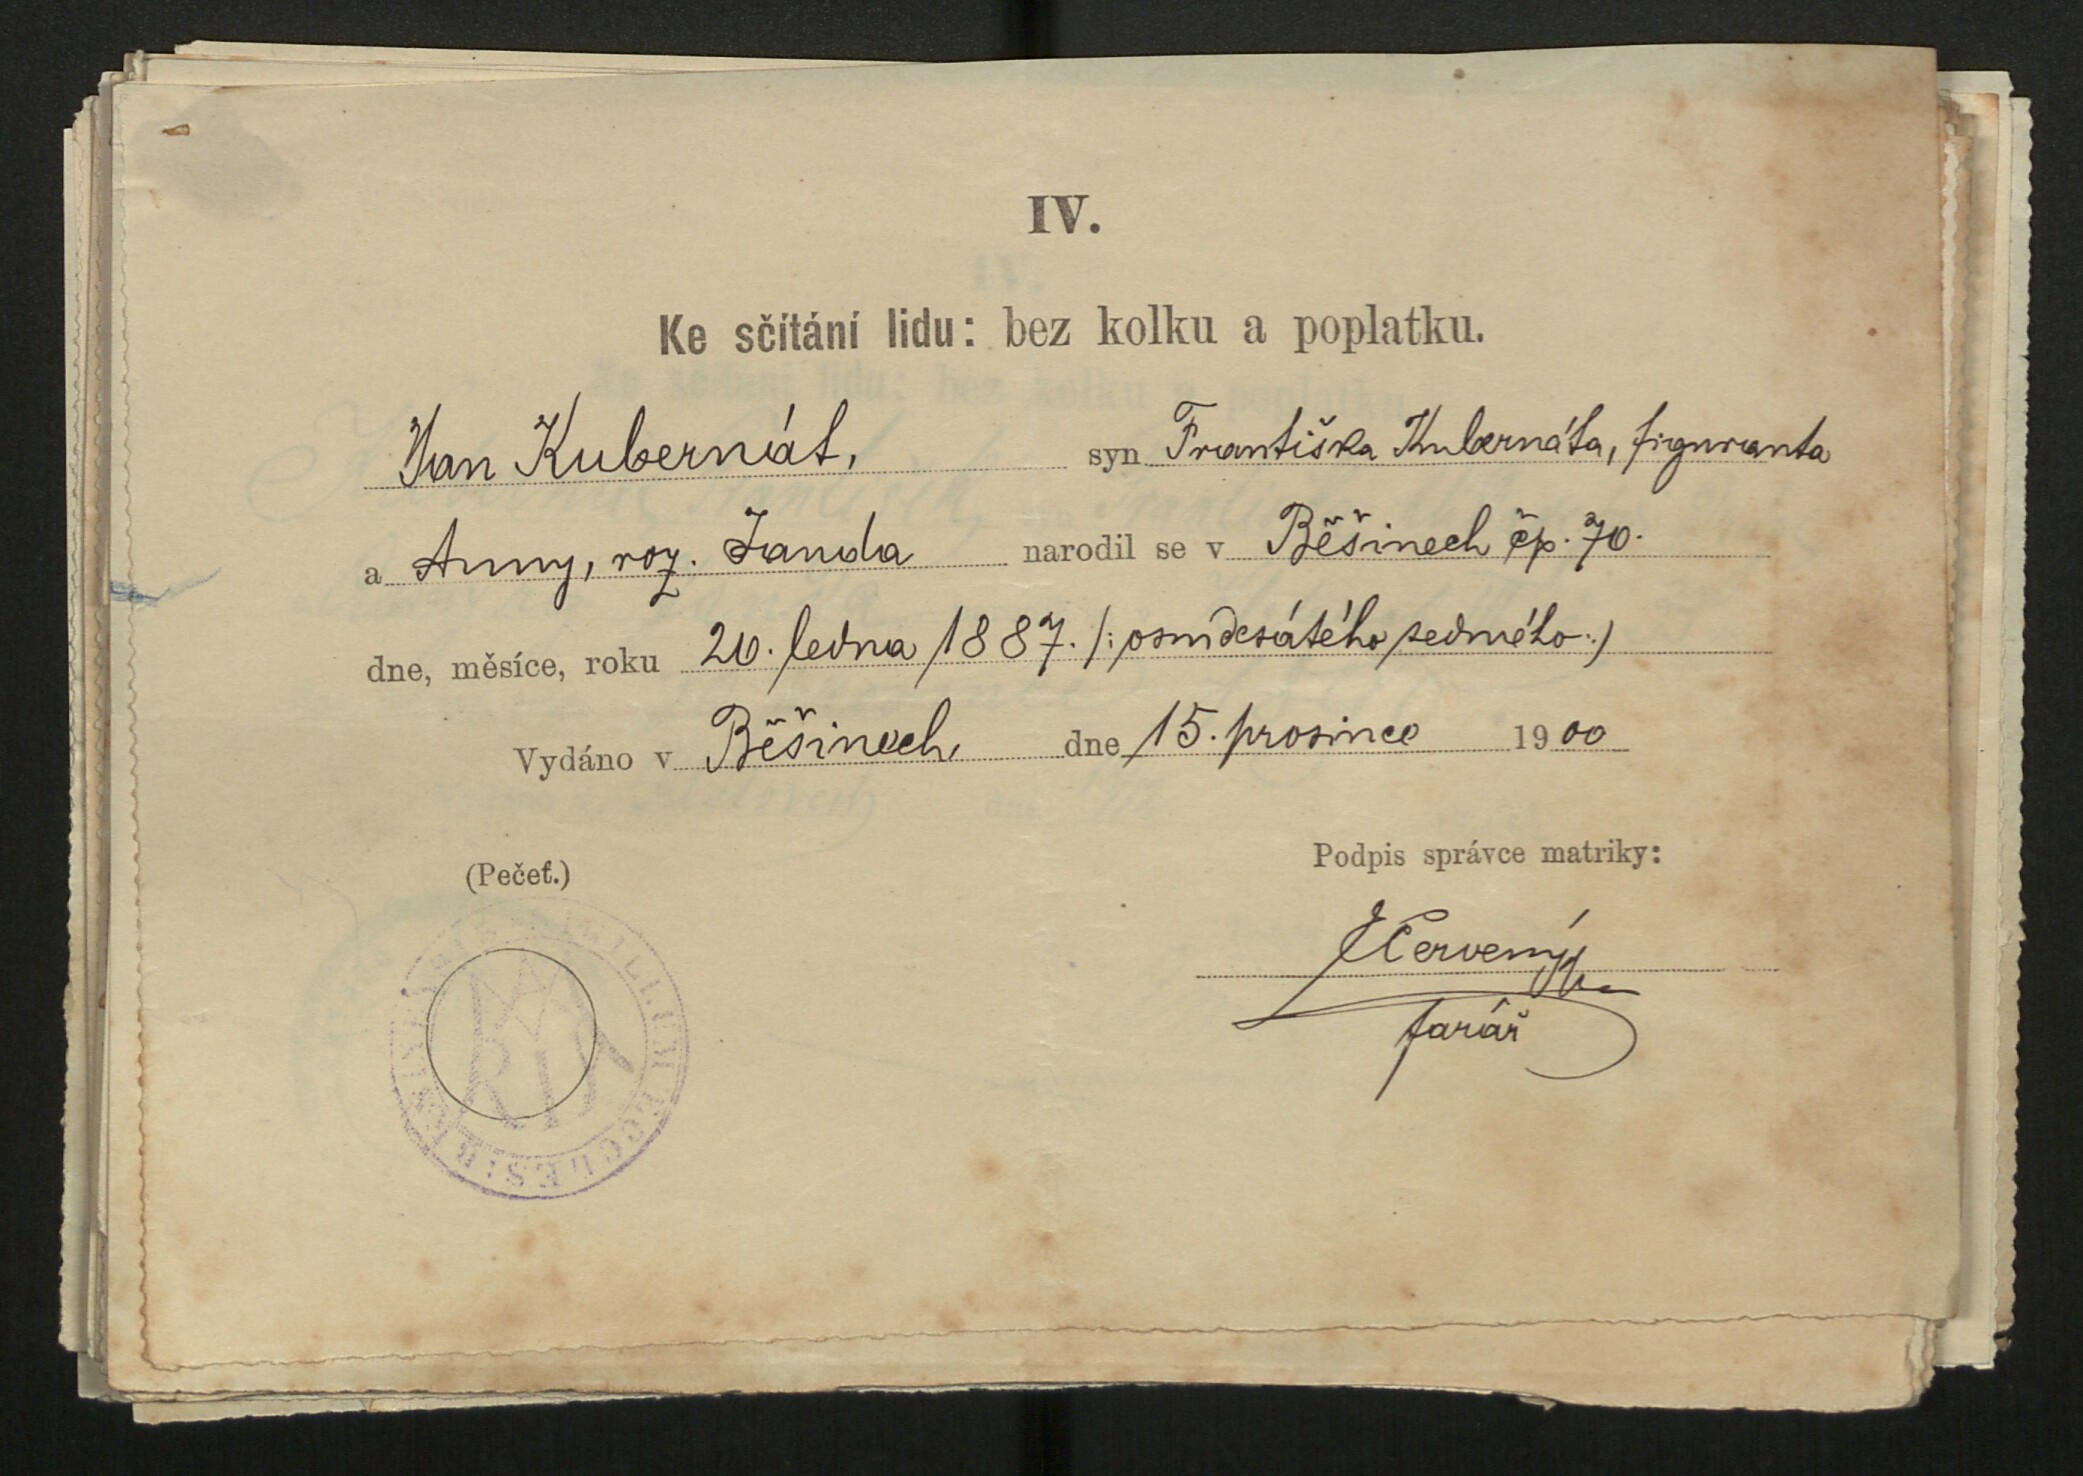 IV.
Ke sčítání lidu: bez kolku a poplatku.
Jan Kubernát, syn Františka Kubernáta, figuranta
a Anny, roz. Janda narodil se v Běšinech čp. 70.
dne, měsíce, roku 20. ledna 1887. /: osmdesátého sedmého :/
Vydáno v Běšinech, dne 15. prosince 1900
(Pečeť.)
Podpis správce matriky:
Červený
farář
SIGILLUM ECCLES: